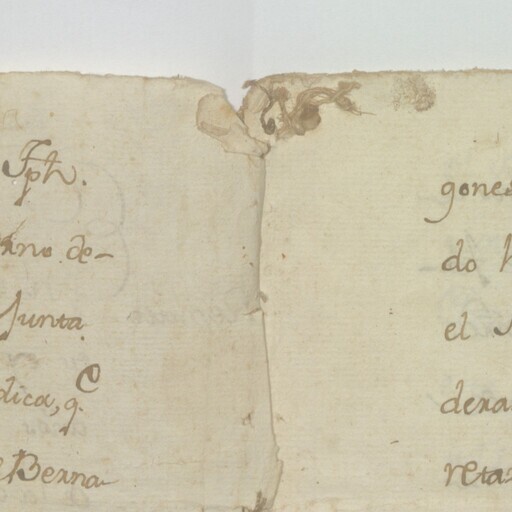 Jph.
de-
Junta
dica, q.e
Berna-
gones
do
el
dera
reta